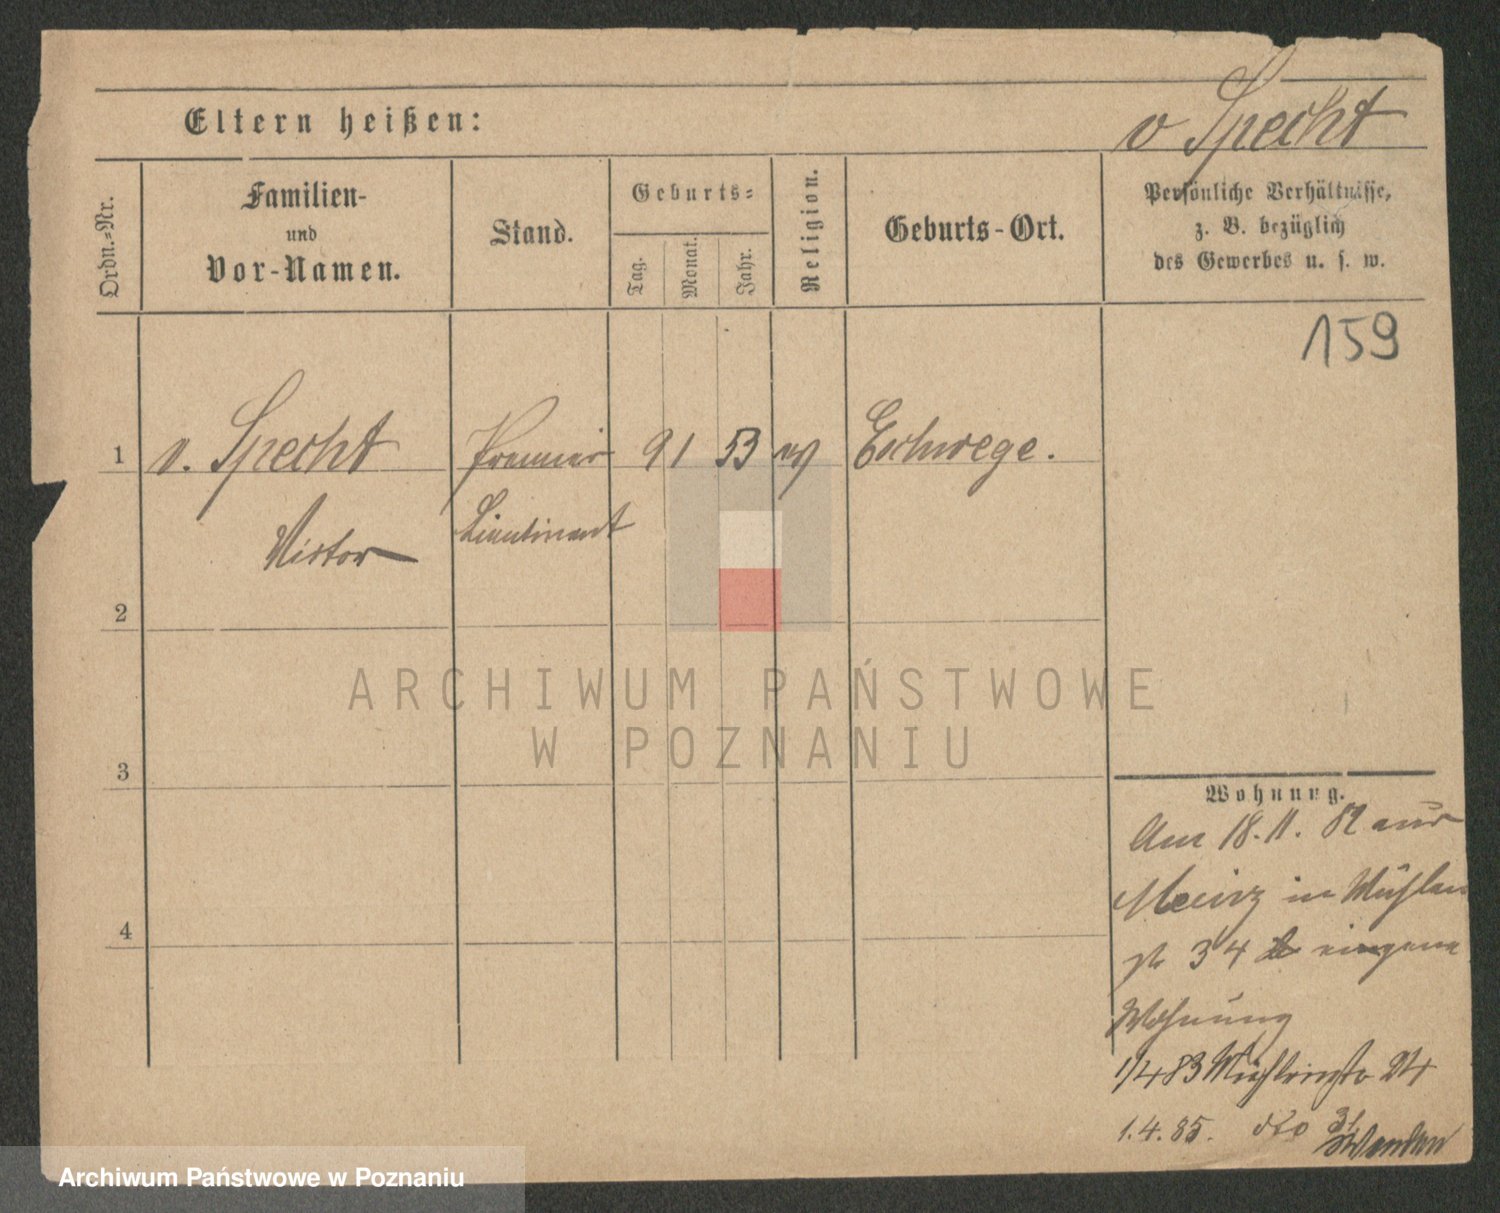 v Specht
Eltern heißen:
Ordn.-Nr.
Familien-
und
Vor-Namen.
Stand.
Geburts-
Tag.
Monat.
Jahr.
Religion.
Geburts-Ort.
Persönliche Verhältnisse,
z. B. bezüglich
des Gewerbes u. s. w.
159
1 v. Specht Premier 9 1 53 ev Eschwege.
Victor Lieutinant
2
3
4
Wohnung.
Am 18. 11. 82 aus
Mainz in Mühlen
st 34 eingene
Wohnung
1/4 83 Mühlenstr 24
1. 4. 85. dto 31
ARCHIWUM PAŃSTWOWE
W POZNANIU
Archiwum Państwowe w Poznaniu